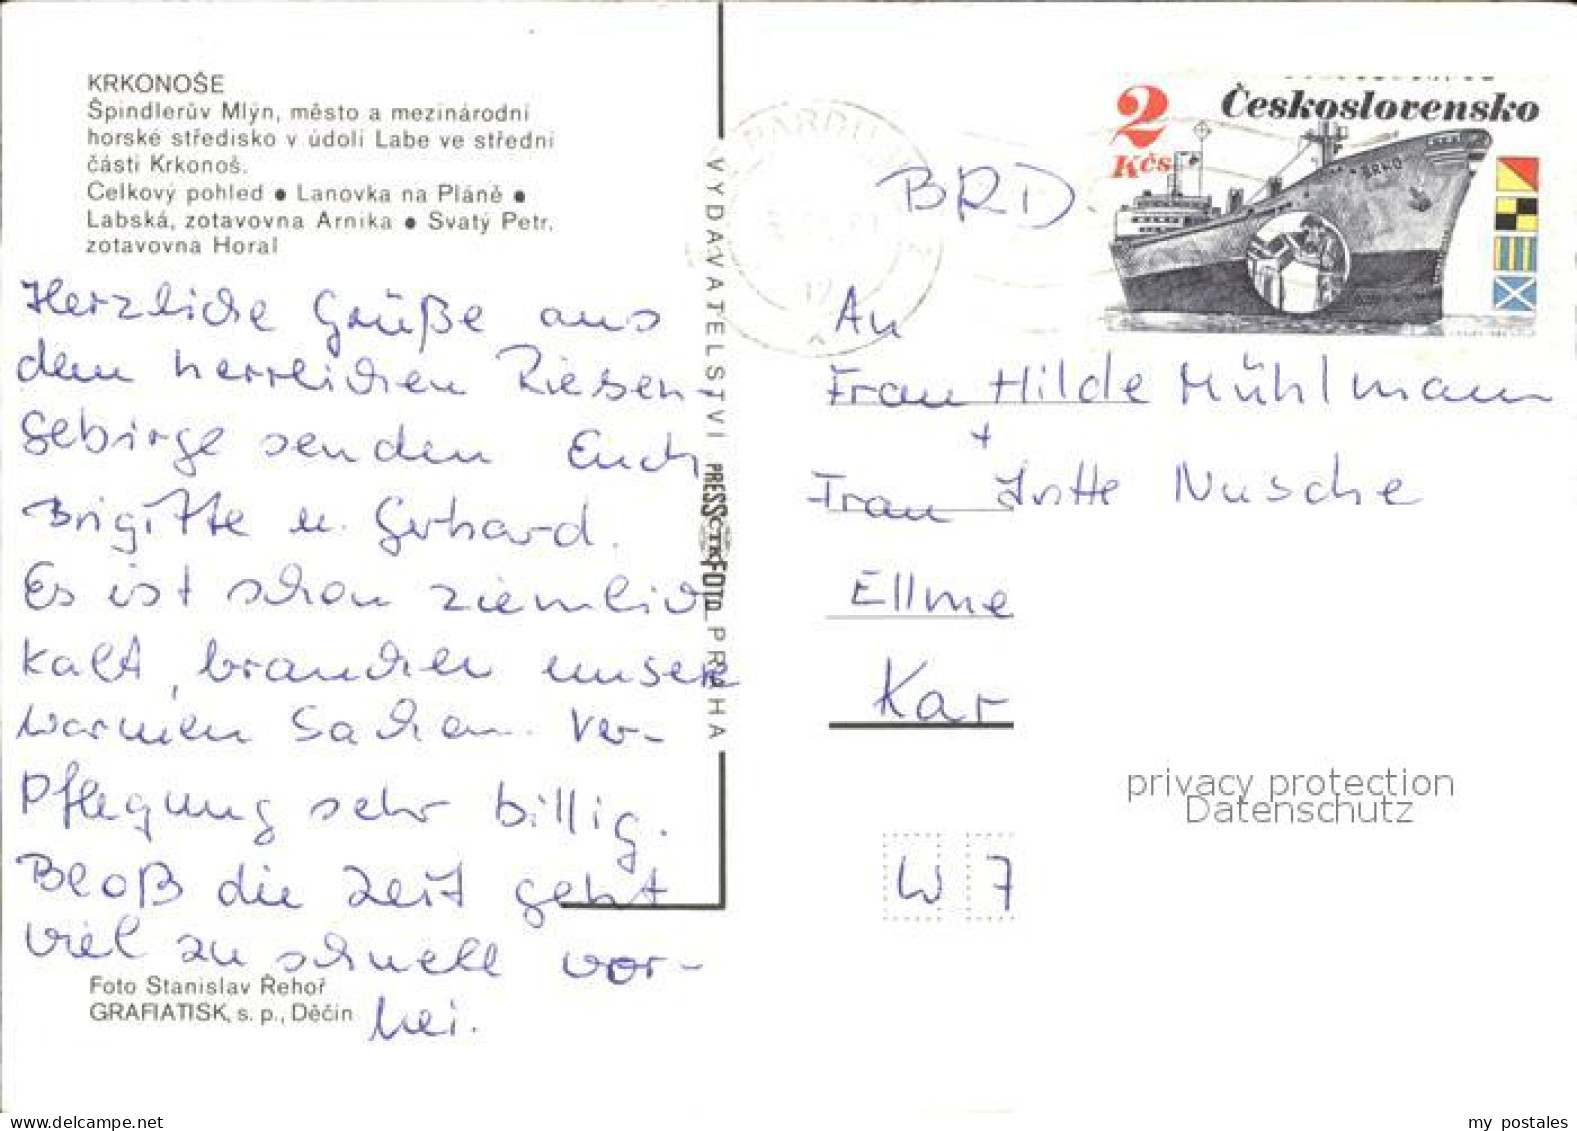 KRKONOŠE
Špindlerův Mlýn, město a mezinárodní
horské středisko v údolí Labe ve střední
části Krkonoš.
Celkový pohled ● Lanovka na Pláně ●
Labská, zotavovna Arnika ● Svatý Petr,
zotavovna Horal
Herzliche Grüße aus
dem herrlichen Riesen-
gebirge senden Euch
Brigitte u. Gerhard.
Es ist schon ziemlich
kalt, brauchen unsere
warmen Sachen. Ver-
pflegung sehr billig.
Bloß die Zeit geht
viel zu schnell vor-
bei.
Foto Stanislav Řehoř
GRAFIATISK, s. p., Děčín
VYDAVATELSTVÍ PRESSFOTO PRAHA
2 Kčs
Československo
BRNO
BRD.
An
Frau Hilde Mühlmann
+
Frau Lotte Nusche
Ellme
Kar
W 7
privacy protection
Datenschutz
my postales